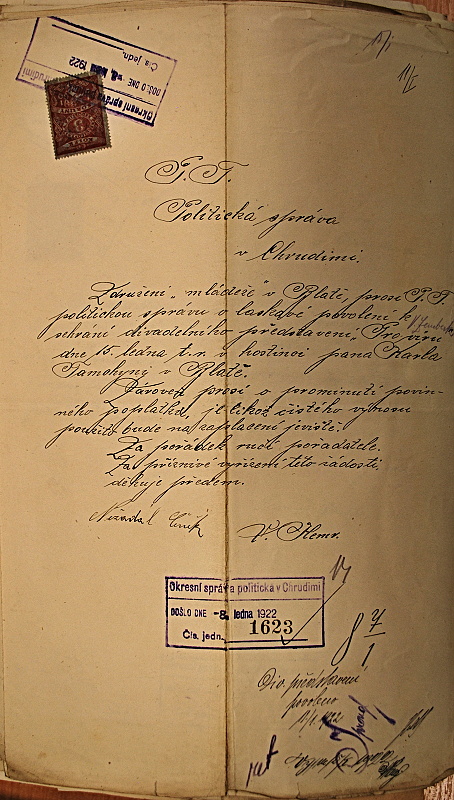 Okresní správa
DOŠLO DNE -8. 1922
Čís. jedn.
11/I
P. T.
Politická správa
v Chrudimi.
Združení „mládeže" v Blatě, prosí P. T.
politickou správu o laskavé povolení k
sehrání divadelního představení „Pro víru
dne 15. ledna t. r. v hostinci pana Karla
v Blatě.
Zároveň prosí o prominutí povin-
ného poplatku, jelikož čistého výnosu
použito bude na zaplacení jeviště.
Za pořádek ručí pořadatelé.
Za příznivé vyřízení této žádosti
děkuje předem.
Okresní správa politická v Chrudimi
DOŠLO DNE -8. ledna 1922
Čís. jedn. 1623
Div. představení
povoleno